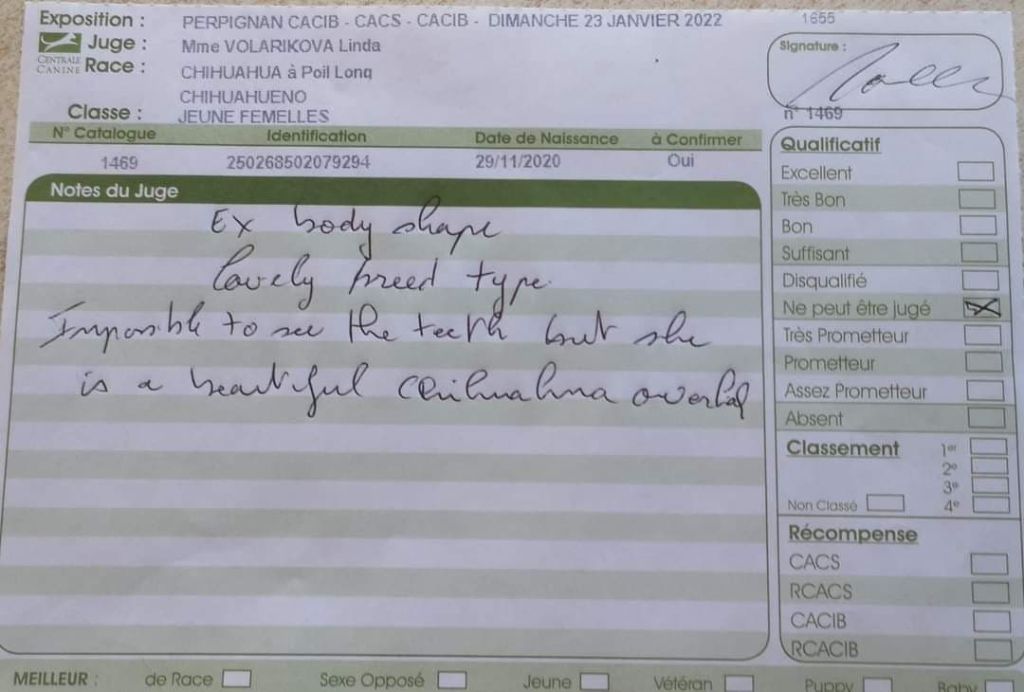 Exposition : PERPIGNAN CACIB - CACS - CACIB - DIMANCHE 23 JANVIER 2022 1655
Juge : Mme VOLARIKOVA Linda
CENTRALE CANINE
Race : CHIHUAHUA à Poil Long
CHIHUAHUENO
Classe : JEUNE FEMELLES
Signature :
n° 1469
N° Catalogue Identification Date de Naissance à Confirmer
1469 250268502079294 29/11/2020 Oui
Notes du Juge
Ex body shape
lovely breed type
Impossible to see the teeth but she
is a beautiful chihuahua overhal
Qualificatif
Excellent
Très Bon
Bon
Suffisant
Disqualifié
Ne peut être jugé
Très Prometteur
Prometteur
Assez Prometteur
Absent
Classement 1er
2e
3e
Non Classé 4e
Récompense
CACS
RCACS
CACIB
RCACIB
MEILLEUR : de Race Sexe Opposé Jeune Vétéran Puppy Baby